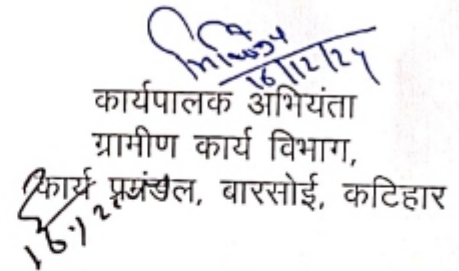 16/12/24
कार्यपालक अभियंता
ग्रामीण कार्य विभाग,
कार्य प्रमंडल, बारसोई, कटिहार